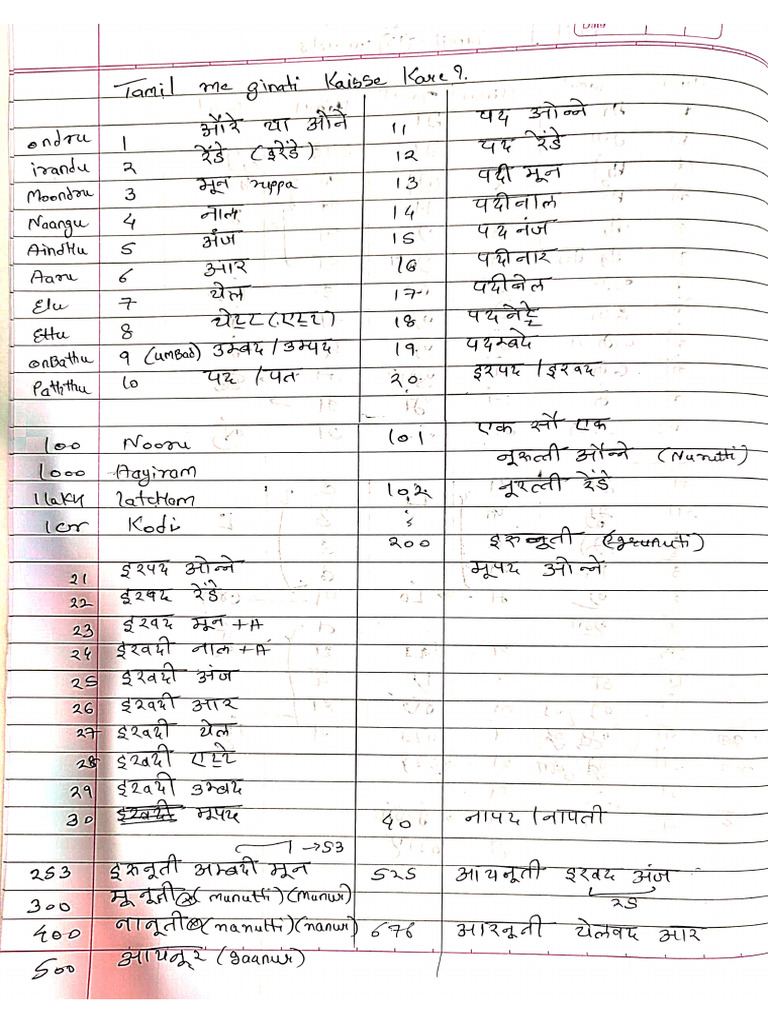 Date
Tamil me ginati Kaisse Kare?
ondru 1 औरे या औने 11 पद ओन्ने
irandu 2 रेंडे (इरेंडे) 12 पद रेंडे
Moondru 3 मून ruppa 13 पदी मून
Naangu 4 नाल 14 पदीनाल
Aindhu 5 अंज 15 पद नंज
Aaru 6 आर 16 पदीनार
Elu 7 येल 17 पदीनेल
Ettu 8 (एट्ट) 18 पदनेट्टे
onBathu 9 (umbad) उम्बद / उम्पद 19 पदम्बदे
Paththu 10 पद / पत 20 इरपद / इरवद
100 Nooru 101 एक सौ एक
नूरुत्ती औन्ने (Nurutti)
1000 Aayiram
1laky latcham 102 नूरुत्ती रेंडे
1cr Kodi
200 इरुनूती
21 इरपद ओन्ने मूपद ओन्ने
22 इरवद रेंडे
23 इरवद मून +A
24 इरवदी नाल +A
25 इरवदी अंज
26 इरवदी आर
27 इरवदी येल
28 इरवदी एट्टे
29 इरवदी उम्बद
30 इरवदी मूपद 40 नापद / नापती
→53
253 इरुनूती अम्बदी मून 525 आयनूती इरवद अंज
25
300 मू नूती (munutti) (munur)
400 नानूती (nanutti) (nanur) 676 आरनूती येलवद आर
500 आयनूर (gaanur)